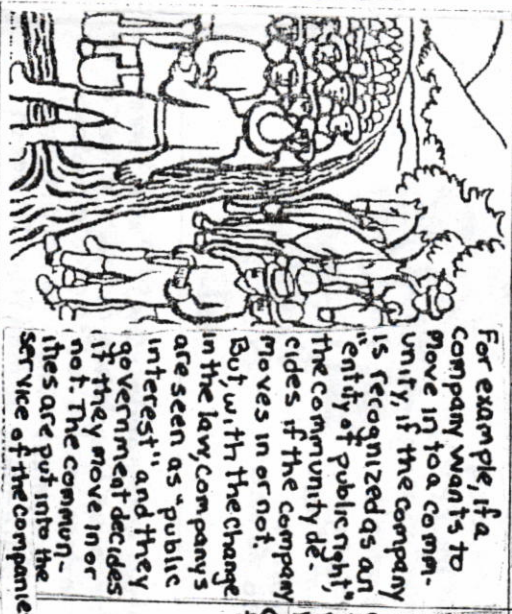 For example, if a
company wants to
move in to a comm-
unity, if the company
is recognized as an
"entity of public right",
the community de-
cides if the company
moves in or not.
But, with the change
in the law, companys
are seen as "public
interest" and they
government decides
if they move in or
not. The commun-
ities are put into the
service of the companie